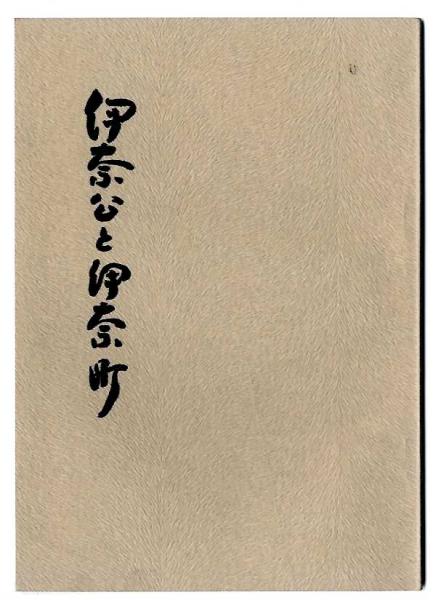 伊奈公と伊奈町